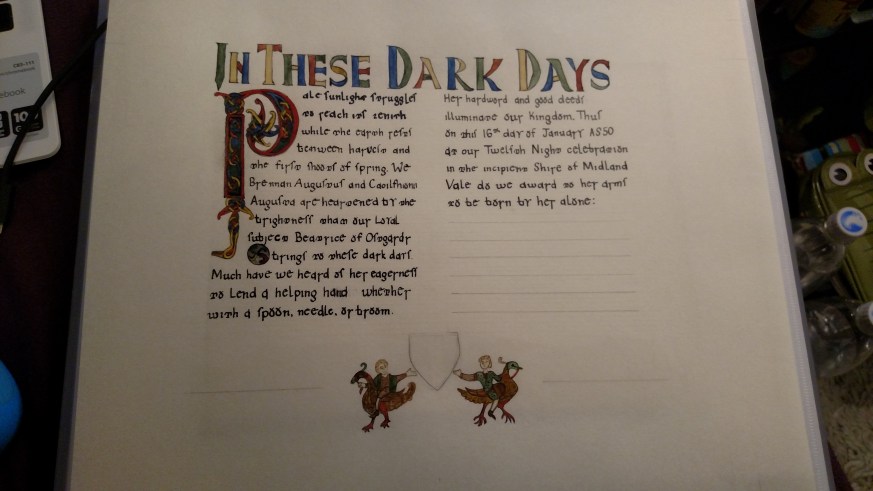 IN THESE DARK DAYS
Pale sunlight struggles
to reach its zenith
while the earth rests
between harvest and
the first shoots of spring. We
Brennan Augustus and Caoilfhionn
Augusta are heartened by the
brightness that our loyal
subject Beatrice of Osngardr
brings to these dark days.
Much have we heard of her eagerness
to lend a helping hand whether
with a spoon, needle, or broom.
Her hardword and good deeds
illuminate our Kingdom. Thus
on this 16th day of January AS50
at our Twelfth Night celebration
in the incipient Shire of Midland
Vale do we award to her arms
to be born by her alone:
ebook